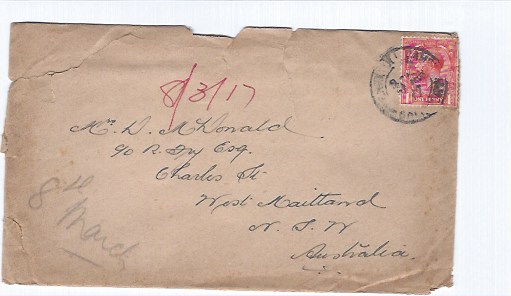 8/3/17
Mr. D. McDonald
c/o R. Fry Esq.
Charles St
West Maitland
N. S. W
Australia.
8th March